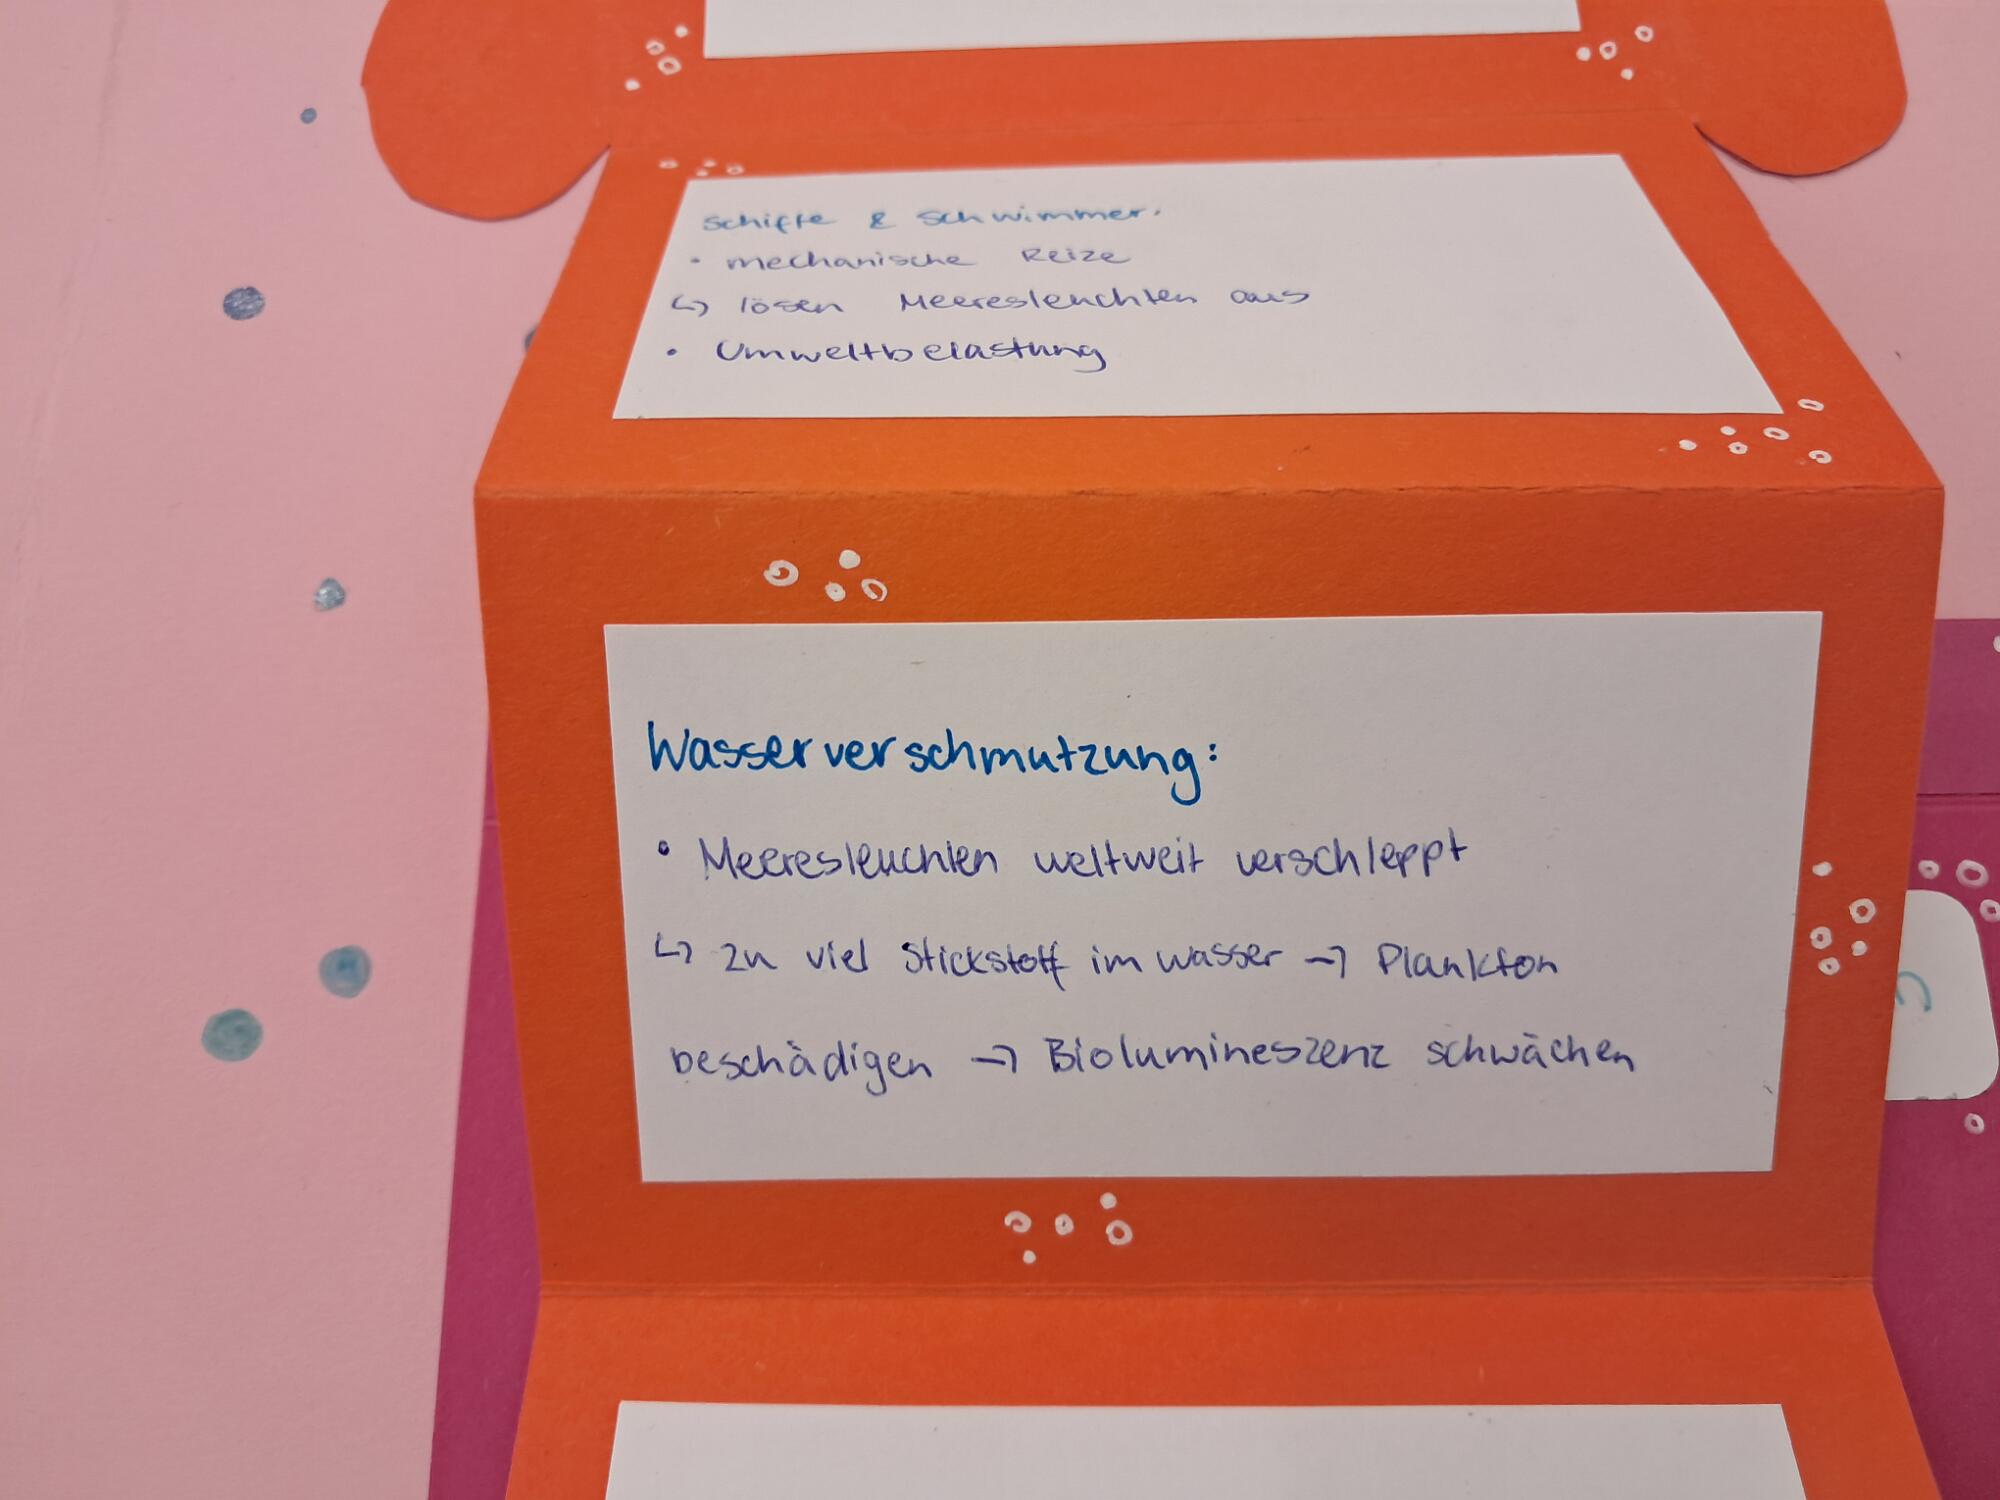 Schiffe & Schwimmer:
• mechanische Reize
↳ lösen Meeresleuchten aus
• Umweltbelastung
Wasserverschmutzung:
• Meeresleuchten weltweit verschleppt
↳ zu viel Stickstoff im wasser → Plankton
beschädigen → Biolumineszenz schwächen